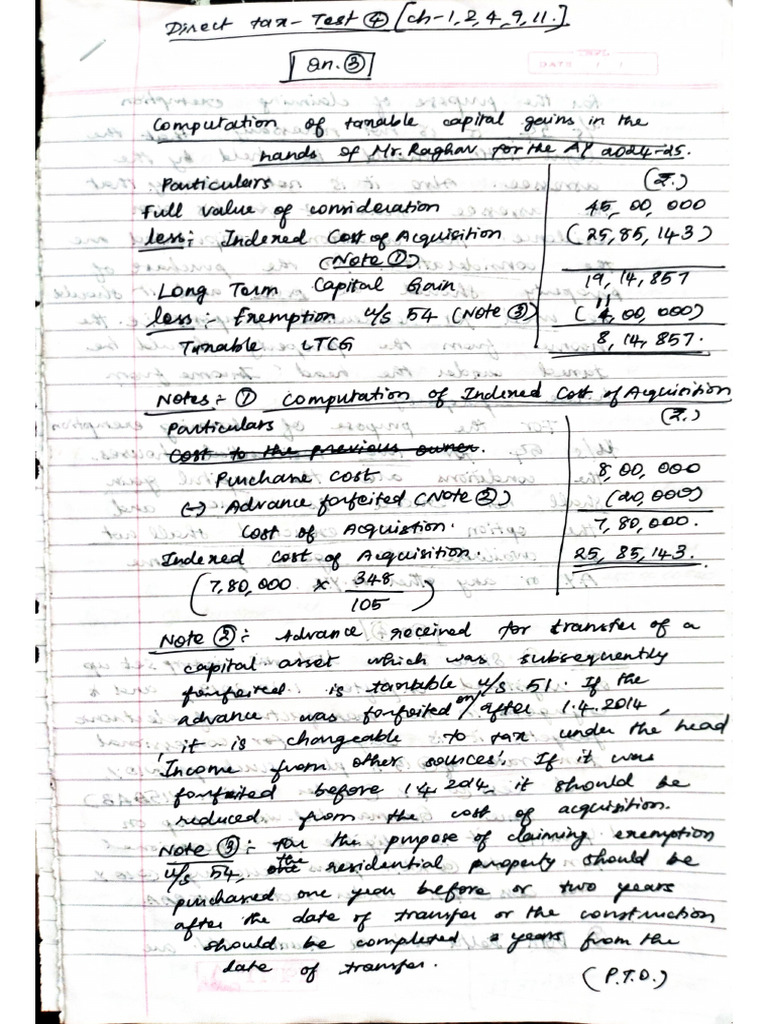 Direct tax - Test ④ [ch-1,2,4,9,11.]
Qn. ③
Computation of taxable capital gains in the
hands of Mr. Raghav for the AY 2024-25.
Particulars (₹.)
Full value of consideration 45,00,000
less: Indexed Cost of Acquisition (25,85,143)
(Note ①)
Long Term Capital Gain 19,14,857
less:- Exemption u/s 54 (Note ③) (11,00,000)
Taxable LTCG 8,14,857.
Notes:- ① Computation of Indexed Cost of Acquisition
Particulars (₹.)
Cost to the previous owner.
Purchase cost 8,00,000
(-) Advance forfeited (Note ②) (20,000)
Cost of Acquistion. 7,80,000.
Indexed Cost of Acquisition. 25,85,143.
(7,80,000 × 348/105)
Note ②:- Advance received for transfer of a
capital asset which was subsequently
forfeited is taxable u/s 51. If the
advance was forfeited on/after 1.4.2014,
it is chargeable to tax under the head
'Income from other sources'. If it was
forfeited before 1.4.2014, it should be
reduced from the cost of acquisition.
Note ③:- For the purpose of claiming exemption
u/s 54, the residential property should be
purchased one year before or two years
after the date of transfer or the construction
should be completed years from the
date of transfer.
(P.T.O.)